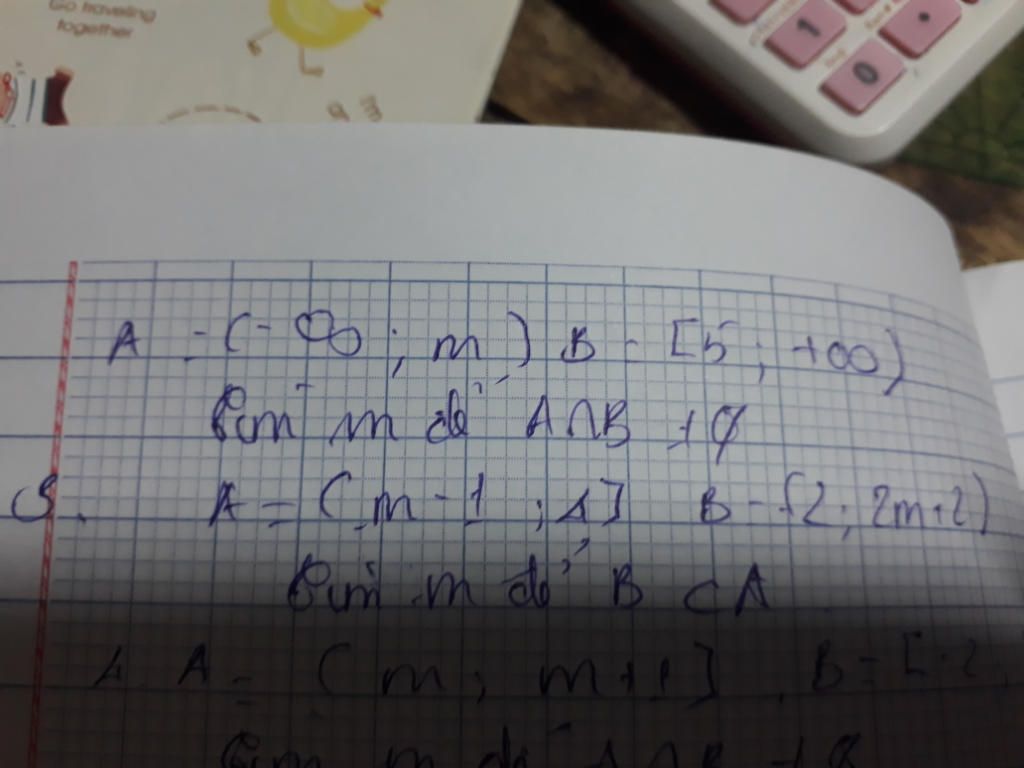 Go traveling
together
1
0
A = (-∞ ; m) B = [5 ; +∞)
Tìm m để A∩B ≠ ∅
3. A = (m-1 ; 4] B = (2 ; 2m+2)
Tìm m để B ⊂ A
4. A = (m ; m+1] , B = [-2
Tìm m để A∩B ≠ ∅